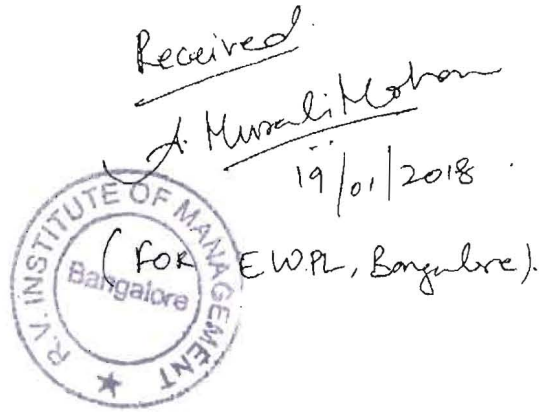 Received
A. MuraliMohan
19/01/2018.
(FOR EWPL, Bangalore).
R.V. INSTITUTE OF MANAGEMENT
Bangalore